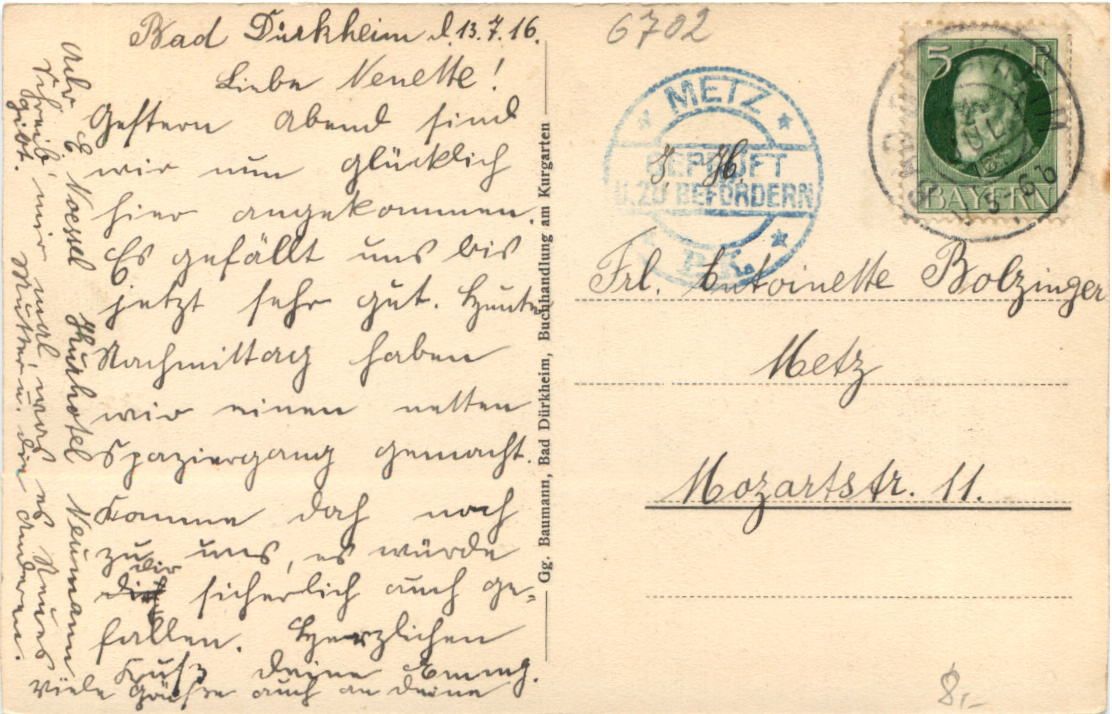 Bad Dürkheim d. 13.7.16.
Liebe Nenette!
Gestern Abend sind
wir nun glücklich
hier angekommen.
Es gefällt uns bis
jetzt sehr gut. Heute
Nachmittag haben
wir einen netten
Spaziergang gemacht.
Komme doch noch
zu uns, es würde
dir sicherlich auch ge=
fallen. Herzlichen
Kuß deine Emmy.
Viele Grüße auch an deine
Mutter u. die Anderen.
Schreib' mir mal, was es Neues
gibt.
Adr E Noessel Kurhotel Neumann
Gg. Baumann, Bad Dürkheim, Buchhandlung am Kurgarten
6702
METZ
GEPRÜFT
U.ZU BEFÖRDERN
P.K.
5
BAYERN
Frl. Antoinette Bolzinger
Metz
Mozartstr. 11.
8,-